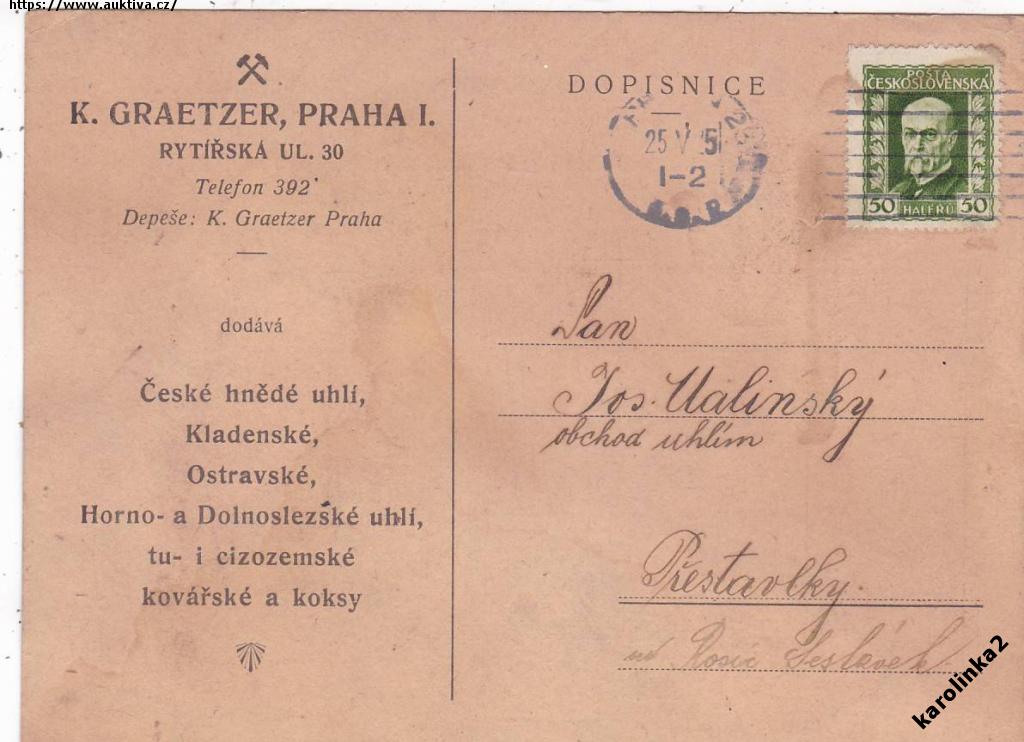 https://www.auktiva.cz/
K. GRAETZER, PRAHA I.
RYTÍŘSKÁ UL. 30
Telefon 392
Depeše: K. Graetzer Praha
dodává
České hnědé uhlí,
Kladenské,
Ostravské,
Horno- a Dolnoslezské uhlí,
tu- i cizozemské
kovářské a koksy
DOPISNICE
25 V 25
1-2
POŠTA
ČESKOSLOVENSKÁ
50 HALÉŘŮ 50
Pan
Jos. Ualinský
obchod uhlím
Přestavlky.
karolinka2